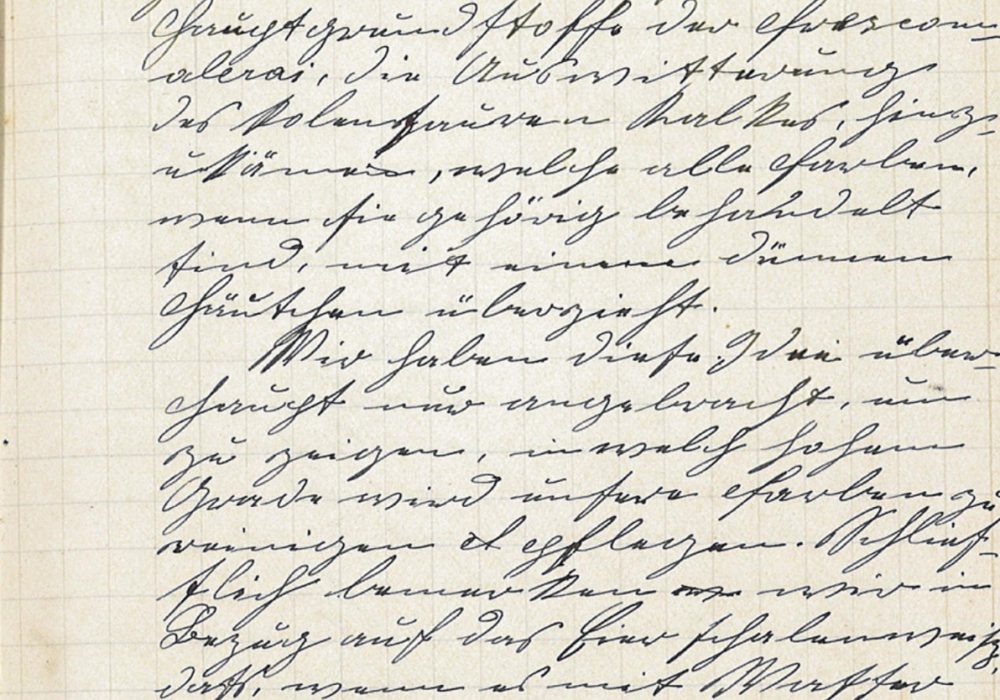 Hauptgrundstoffe der Frescom=
alerai, die Auswitterung
des kolensauren Kalkes, hinz=
ukäme, welche alle Farben,
wenn sie gehörig behandelt
sind, mit einem dünnen
Häutchen überzieht.
Wir haben diese Idee über=
haupt nur angebracht, um
zu zeigen, in welch hohem
Grade wird unsere Farben zu
reinigen et pflegen. Schließ=
slich bemerken wir in
Bezug auf das Eierschalenweiß
daß, wenn es mit Wasser